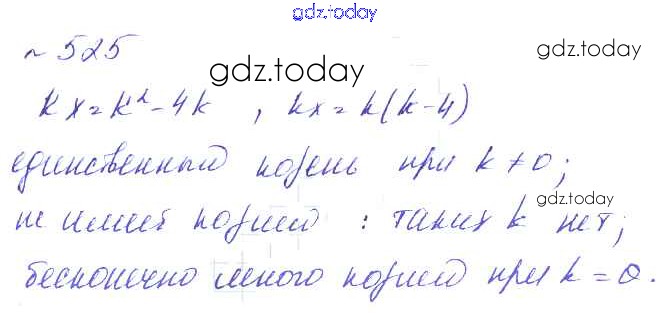 gdz.today
№ 525
gdz.today
gdz.today
kx = k² - 4k , kx = k(k-4)
единственный корень при k ≠ 0;
gdz.today
не имеет корней : таких k нет;
бесконечно много корней при k = 0.